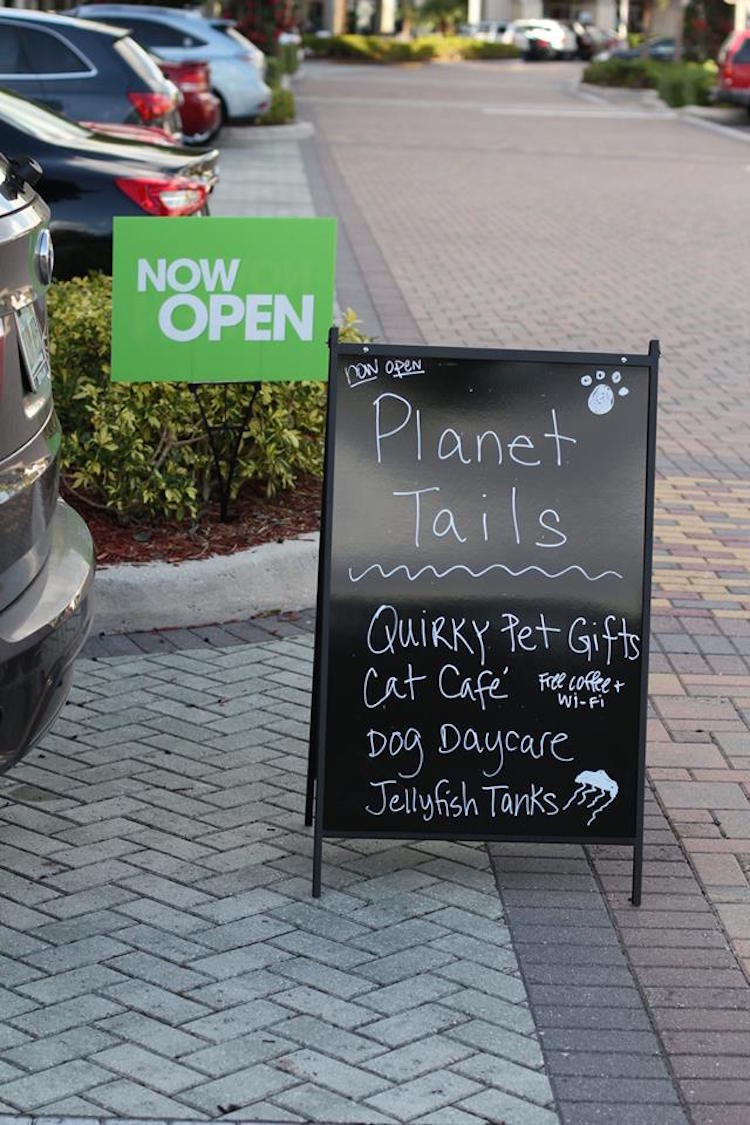 NOW
OPEN
now open
Planet
Tails
QUIRKY Pet Gifts
Cat Café
Free coffee +
Wi-Fi
Dog Daycare
Jellyfish Tanks